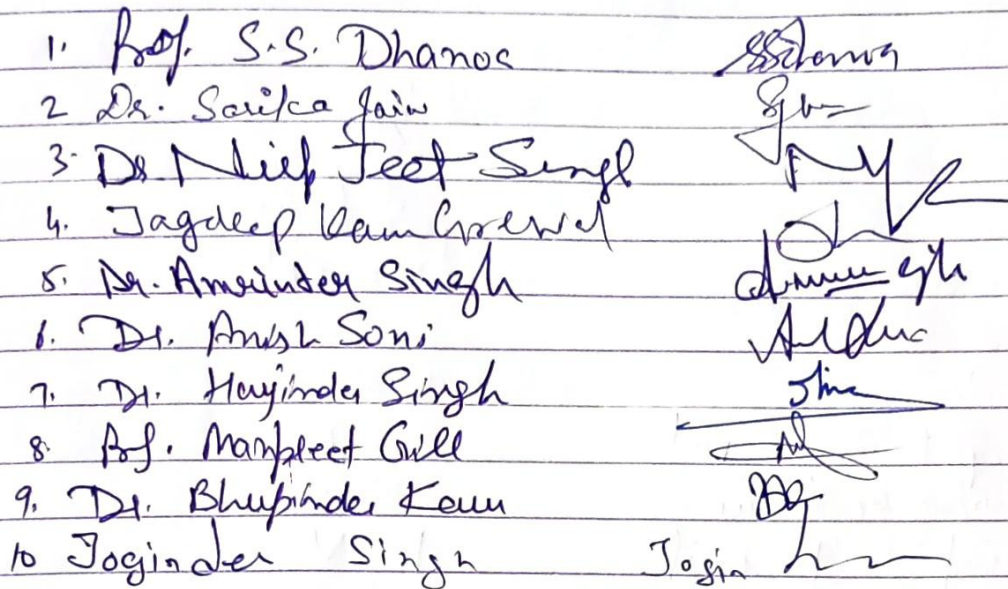 1. Prof. S.S. Dhanoa
2 Dr. Sarika Jain
3. Dr Jeet Singh
4. Jagdeep Kaur Grewal
5. Dr. Amrinder Singh
6. Dr. Anish Soni
7. Dr. Harjinder Singh
8. Prof. Manpreet Gill
9. Dr. Bhupinder Kaur
10 Joginder Singh Jogin